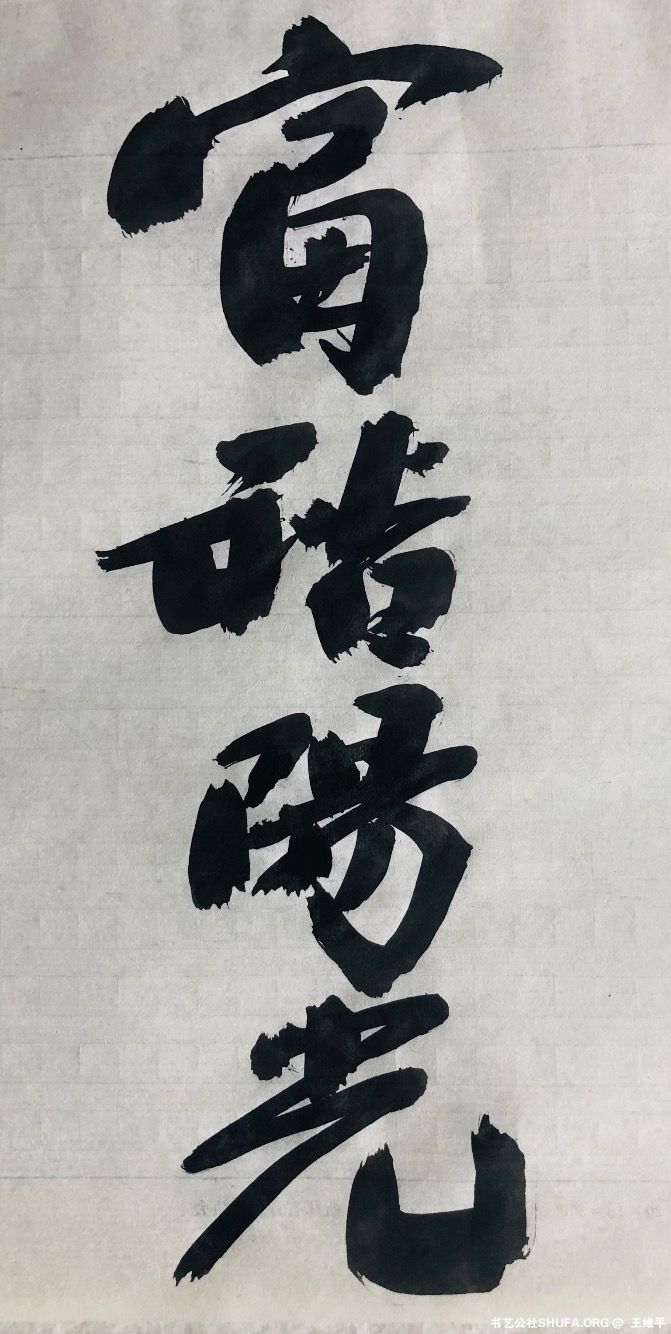 富陽光
书艺公社SHUFA.ORG @ 王维平